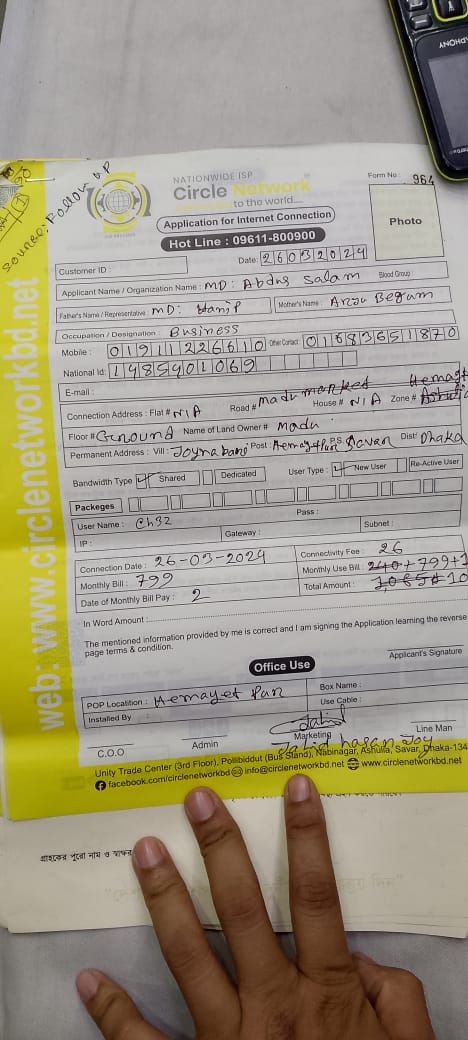 Source: Follow up
NATIONWIDE ISP
Circle Network
to the world....
Application for Internet Connection
Hot Line : 09611-800900
Form No : 964
Photo
Date: 26032024
Customer ID :
Applicant Name / Organization Name : MD: Abdus Salam Blood Group:
Father's Name / Representative : MD: Hanif Mother's Name : Arzu Begum
Occupation / Designation : Business
Mobile : 01911226610 Other Contact 01683651870
National Id: 1485901069
E-mail :
Connection Address : Flat # N/A Road # madu market House # N/A Zone #
Floor # Ground Name of Land Owner # Madu
Permanent Address : Vill: Joynabari Post: P.S. Savar Dist: Dhaka
Bandwidth Type Shared Dedicated User Type : New User Re-Active User
Packeges
User Name : Ch32 Pass :
IP : Gateway : Subnet :
Connection Date : 26-03-2024 Connectivity Fee : 26
Monthly Bill : 799 Monthly Use Bill + 799+1
Date of Monthly Bill Pay : 2 Total Amount :
In Word Amount :
The mentioned information provided by me is correct and I am signing the Application learning the reverse
page terms & condition.
Applicant's Signature
Office Use
POP Localition : Hemayet Pur Box Name :
Installed By Use Cable :
C.O.O Admin Marketing Line Man
Jahid hasan Joy
Unity Trade Center (3rd Floor), Pollibiddut (Bus Stand), Nabinagar, Ashulia, Savar, Dhaka-134
facebook.com/circlenetworkbd info@circlenetworkbd.net www.circlenetworkbd.net
web: www.circlenetworkbd.net
গ্রাহকের পুরো নাম ও স্বাক্ষর